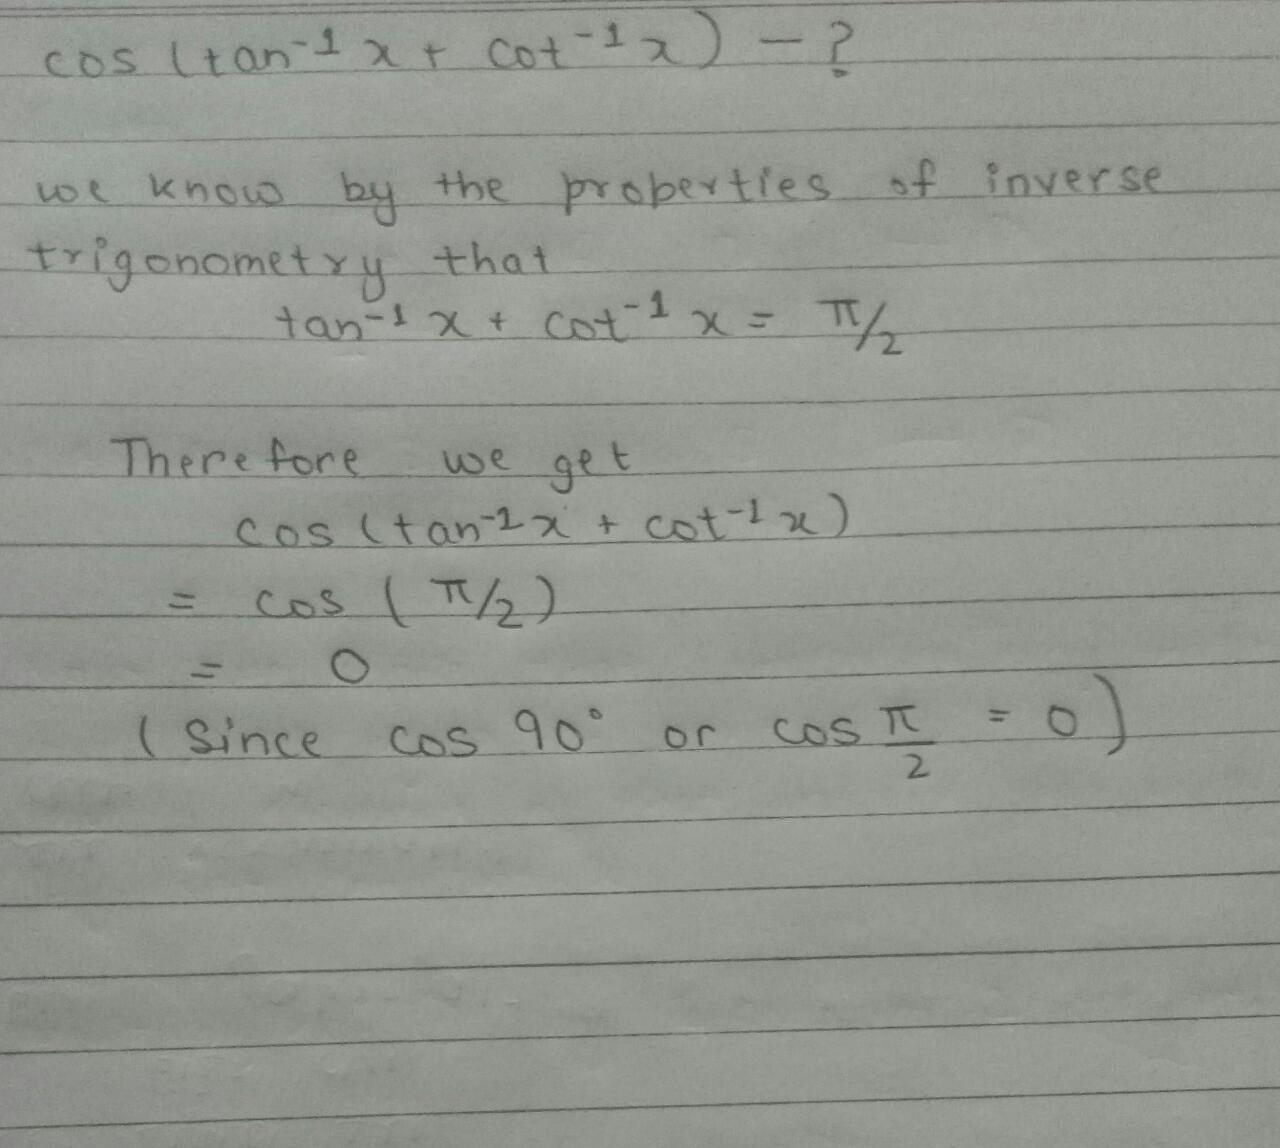 cos (tan-1 x + cot-1 x) - ?
we know by the properties of inverse
trigonometry that
tan-1 x + cot-1 x = π/2
Therefore we get
cos (tan-1 x + cot-1 x)
= cos ( π/2)
= 0
( Since cos 90° or cos π/2 = 0)